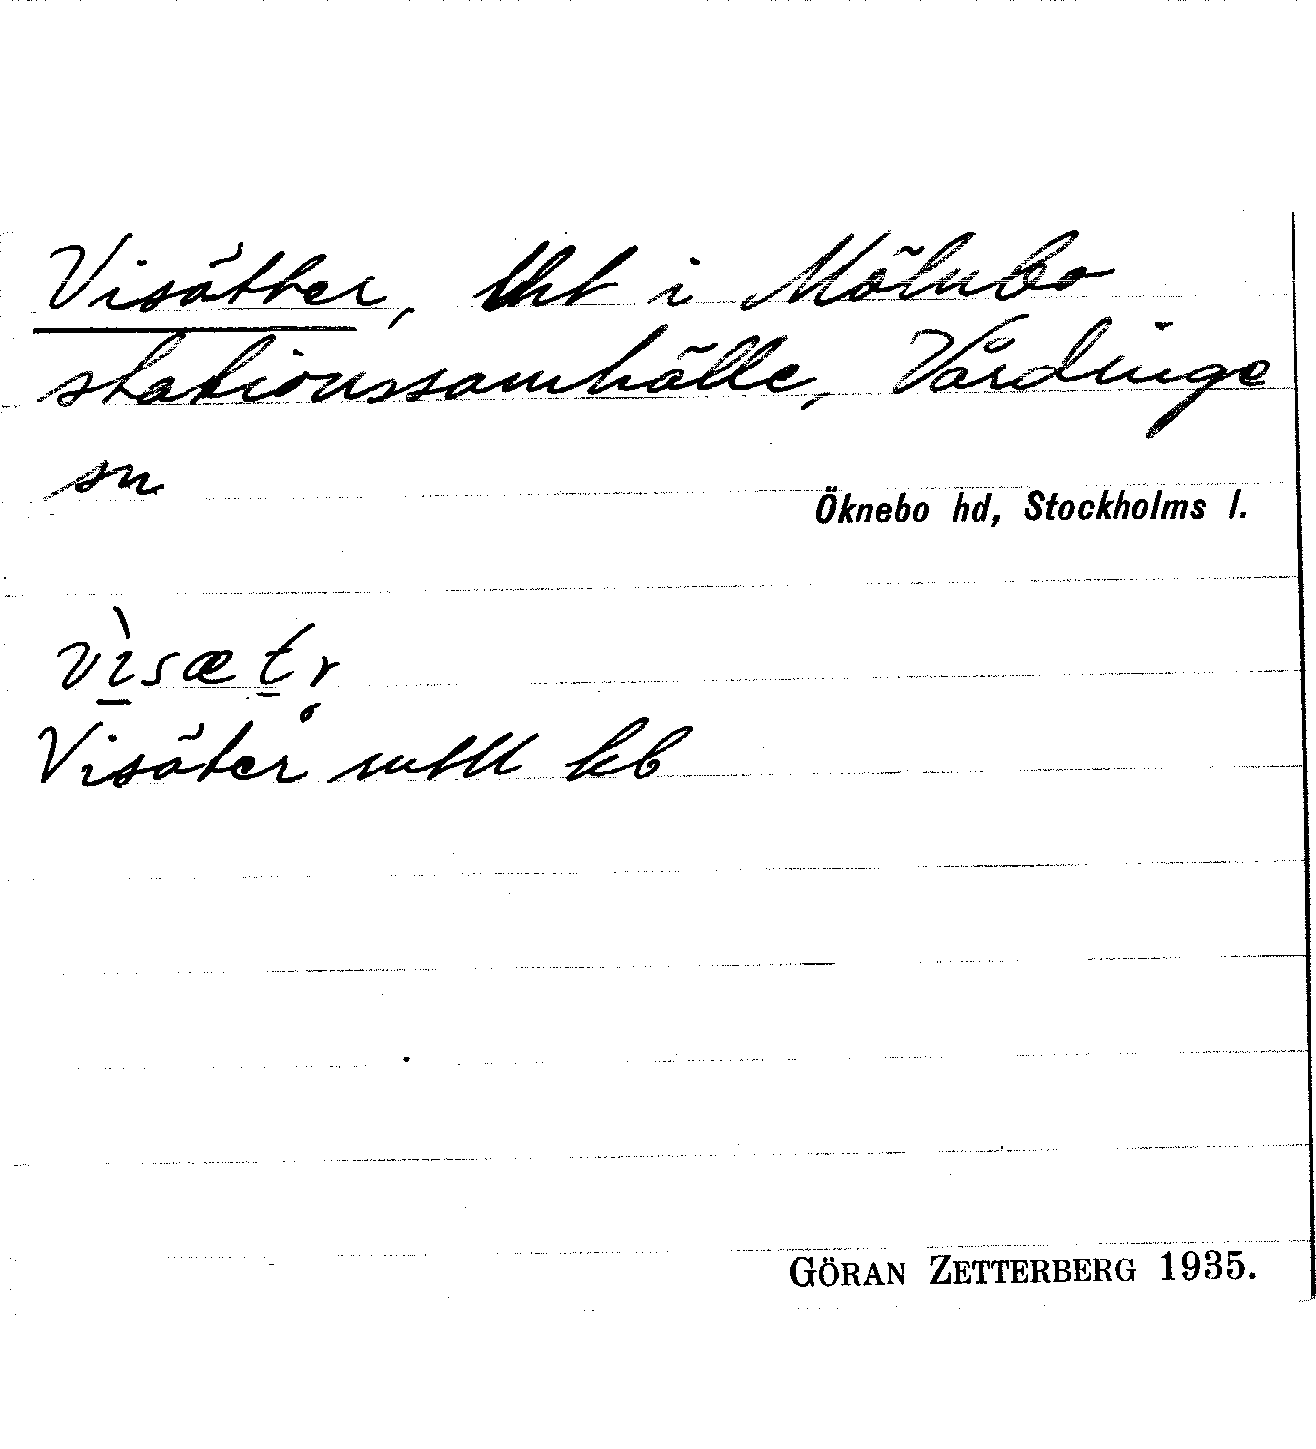 Visätter, lht i Mölnbo
stationssamhälle, Vårdinge
sn
Öknebo hd, Stockholms l.
vì̠sæt̠r̥
Visäter mtll kb
GÖRAN ZETTERBERG 1935.